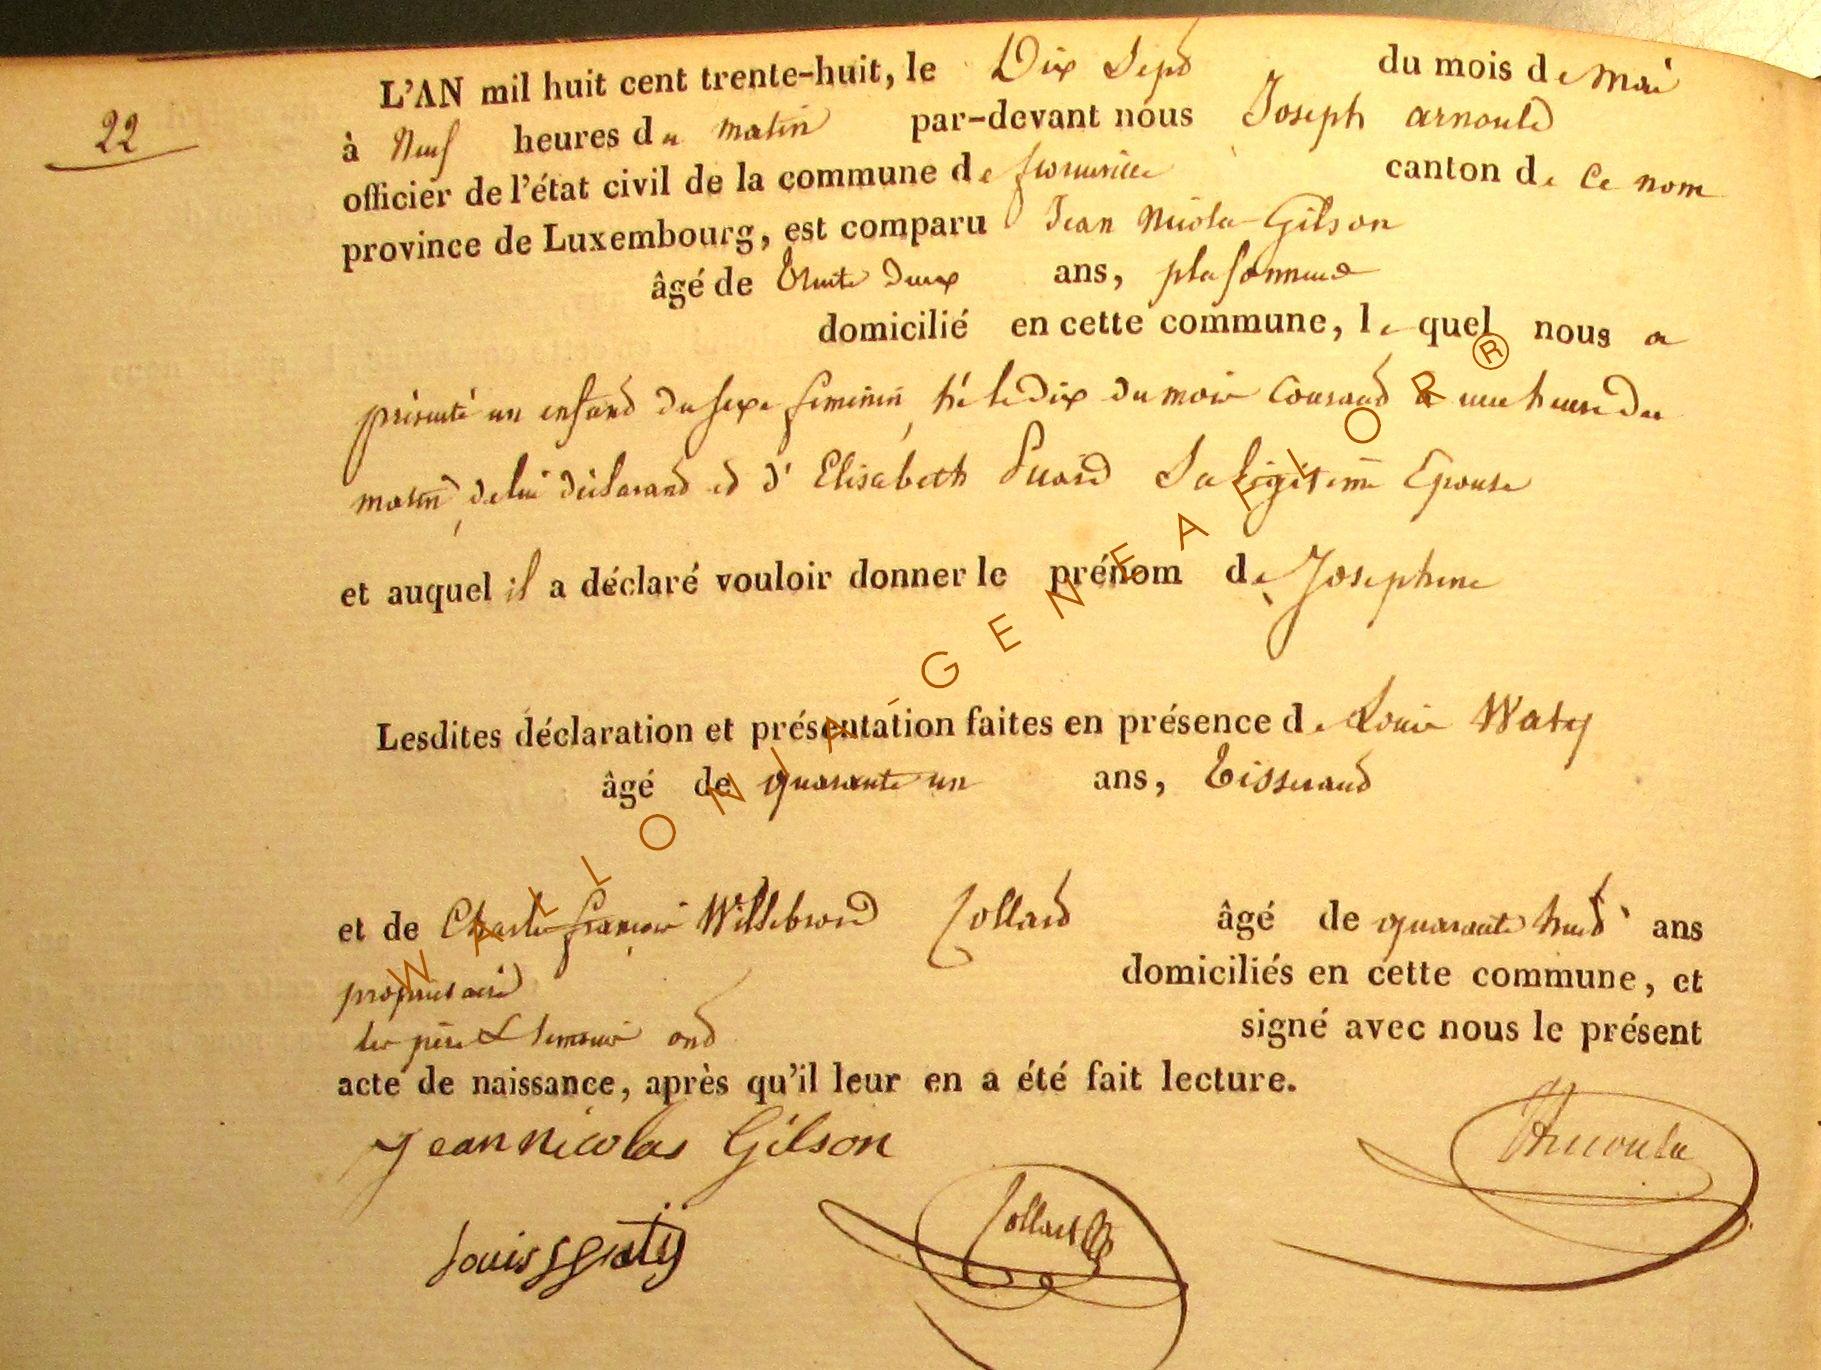 22
L'AN mil huit cent trente-huit, le Dix Sept du mois de Mai
à Neuf heures du matin par-devant nous Joseph arnould
officier de l'état civil de la commune de florenville canton de Ce nom
province de Luxembourg, est comparu Jean Nicolas Gilson
âgé de trente deux ans, plafonneur
domicilié en cette commune, lequel nous a
présenté un enfant du sexe feminin, né le dix du mois Courant a une heure du
matin, de lui déclarant et d' Elisabeth Suard Sa légitime Epouse
et auquel il a déclaré vouloir donner le prénom de Josephine
Lesdites déclaration et présentation faites en présence de Louis Waty
âgé de quarante un ans, tisserand
et de Charles françois Willebrord Collard âgé de quarante huit ans
propriétaire domiciliés en cette commune, et
les père & temoins ont signé avec nous le présent
acte de naissance, après qu'il leur en a été fait lecture.
Jean nicolas Gilson
Arnould
Louis Waty
Collard
WALLONIA-GENEALOR®